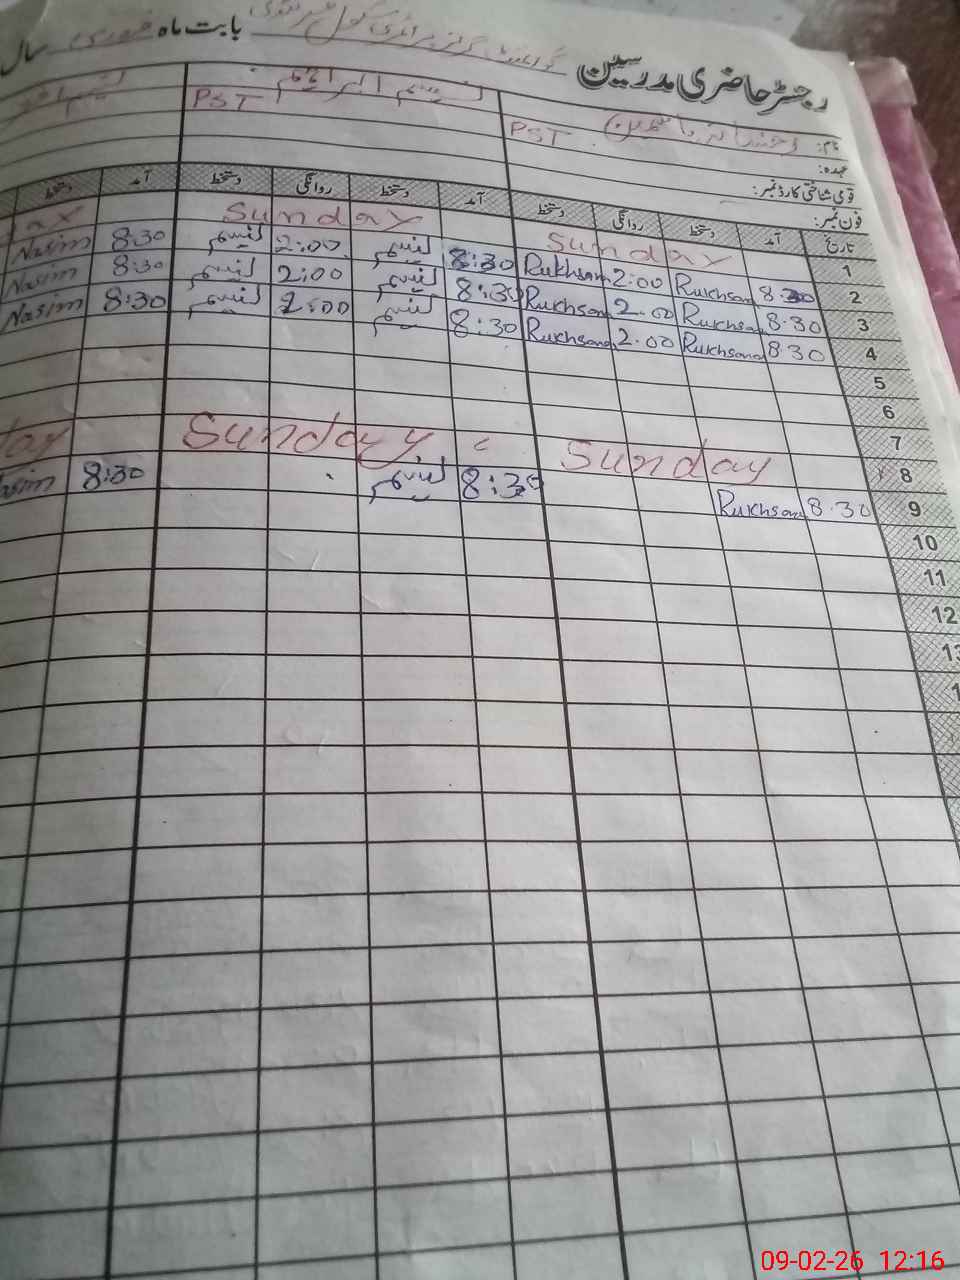 رجسٹر حاضری مدرسین گورنمنٹ گرلز پرائمری سکول بابت ماہ فروری سال
نام: رخسانہ یاسمین
عہدہ: PST PST
قومی شناختی کارڈ نمبر:
فون نمبر:
تاریخ آمد دستخط روانگی دستخط آمد دستخط روانگی دستخط آمد دستخط
1 Sunday Sunday
2 8:30 Rukhsana 2:00 Rukhsana 8:30 نسیم 2:00 نسیم 8:30 Nasim
3 8:30 Rukhsana 2:00 Rukhsana 8:30 نسیم 2:00 نسیم 8:30 Nasim
4 8:30 Rukhsana 2:00 Rukhsana 8:30 نسیم 2:00 نسیم 8:30 Nasim
5
6
7
8 Sunday Sunday
9 8:30 Rukhsana 8:30 نسیم 8:30
10
11
12
13
09-02-26 12:16